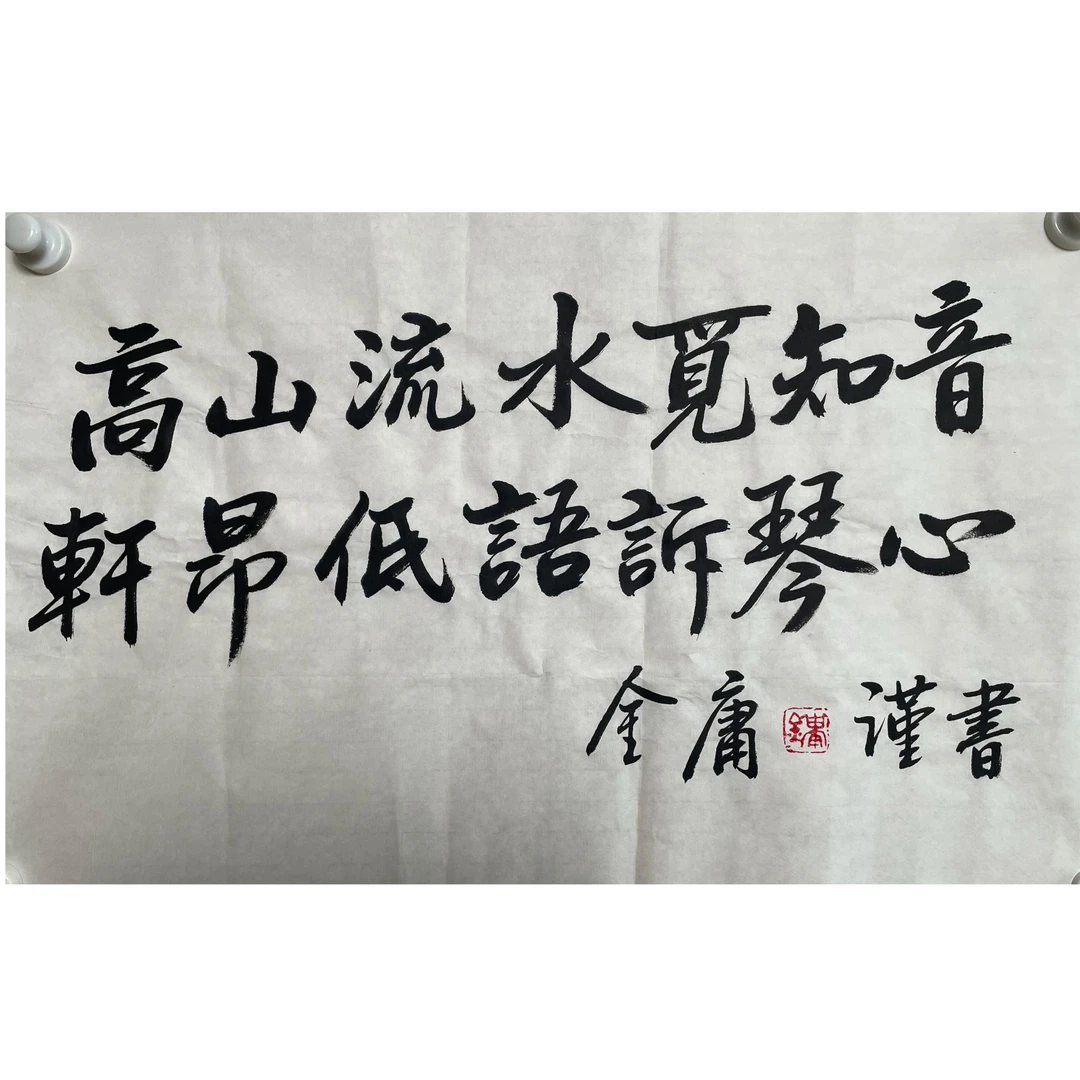 高山流水覓知音
軒昂低語訴琴心
金庸 謹書